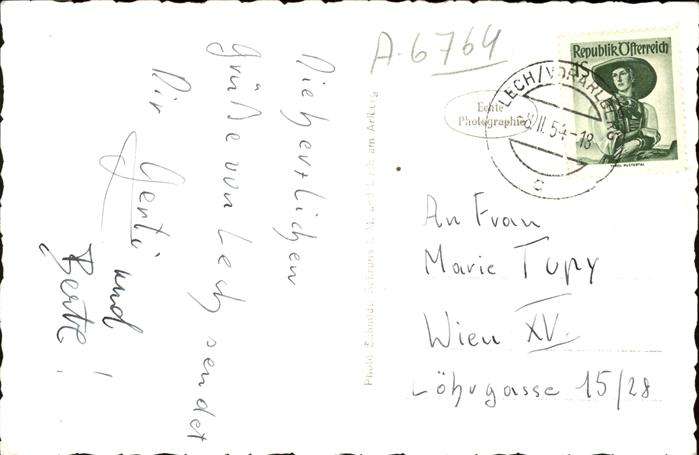 A-6764
Republik Österreich
1S
LECH/VORARLBERG
II.54-18
c
Echte
Photographie
Die herzlichen
Grüße von Lech sendet
Dir Gerti und
Berta!
An Frau
Marie Tupy
Wien XV.
Löhrgasse 15/28
Photo Lech am Arlberg